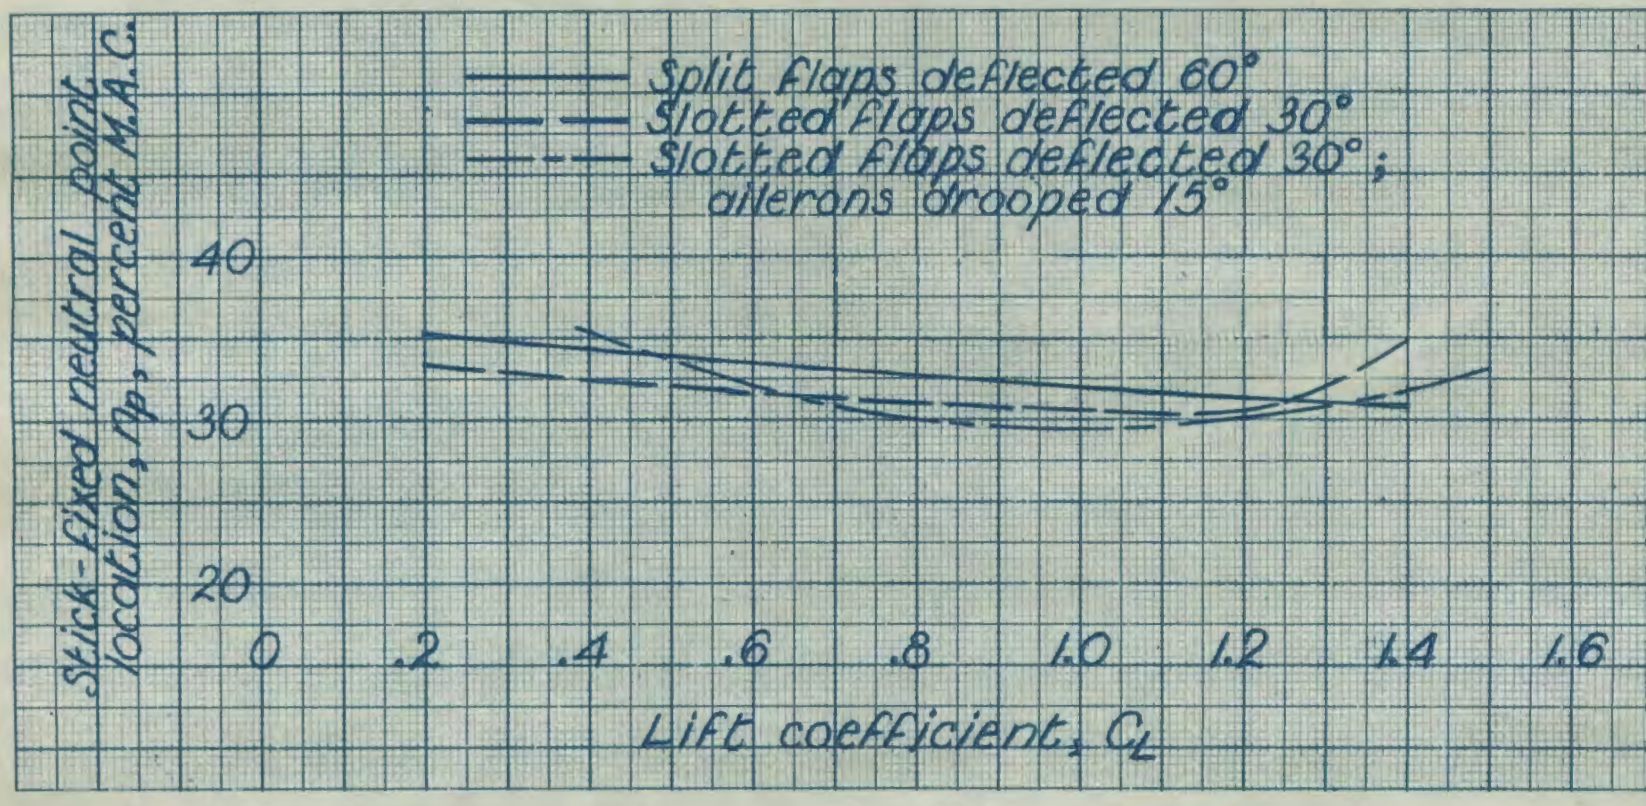 Stick-fixed neutral point
location, np, percent M.A.C.
Split flaps deflected 60°
Slotted flaps deflected 30°
Slotted flaps deflected 30°;
ailerons drooped 15°
40
30
20
0 .2 .4 .6 .8 1.0 1.2 1.4 1.6
Lift coefficient, CL